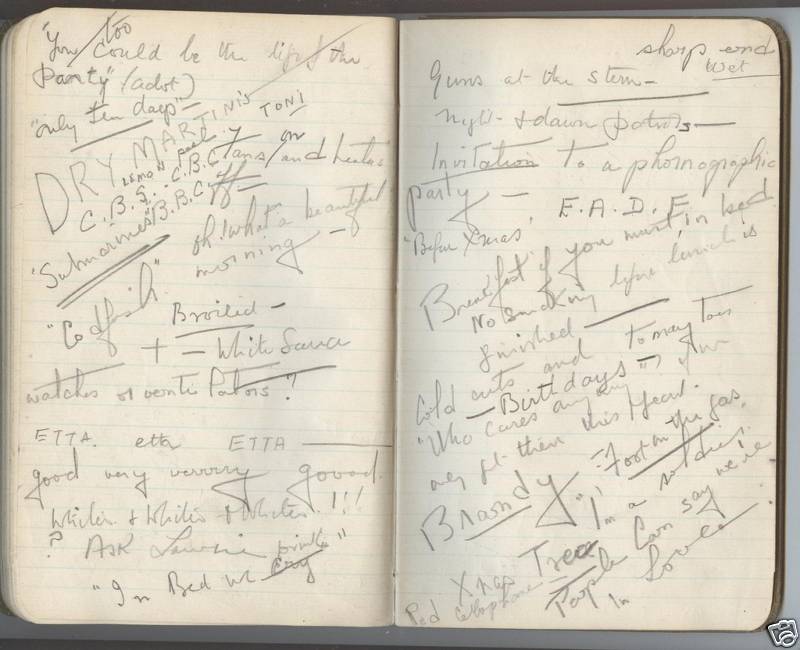 "You too could be the life of the
party" (advt)
"only ten days"
DRY MARTINIS
TONI
lemon peel
C.B.S. - C.B.C.
B.B.C.
Fans/and heaters on
off
"Submarines"
oh! what a beautiful
morning -
"Codfish"
Broiled -
+ - White Sauce
watches or
?
ETTA. etta ETTA
good very verrrry goood.
Whites + Whites + Whites !!!
? ASK
"In Bed
sharp end
Wet
Guns at the stern -
Night - & dawn patrols -
Invitation to a phornographic
party -
E.A.D.F.
"Before Xmas'
Breakfast if you must, in bed
No smoking before lunch is
finished
Cold cuts and tomaytoes
- Birthdays -
"Who cares any way if we
ever get them this year.
Foot on the gas.
Brandy
"I'm a soldier!
Xmas Tree
Red cellophane
People Can say we're
In Love